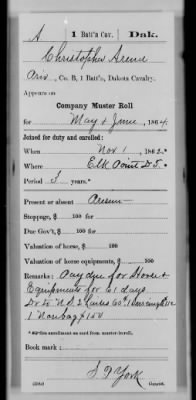 A | 1 Batt'n Cav. | Dak.
Christopher Arend
Priv., Co. B, 1 Batt'n, Dakota Cavalry.
Appears on
Company Muster Roll
for May & June, 1864.
Joined for duty and enrolled:
When Nov 1, 1862.*
Where Elk Point D.T.
Period 3 years.*
Present or absent Present
Stoppage, $ 100 for
Due Gov't, $ 100 for
Valuation of horse, $ 100
Valuation of horse equipments, $ 100
Remarks: Pay due for Horse &
Equipments for 61 days
Dr to U.S. 2
1 Nosebag $1.00
* enrollment as card from muster-in roll.
Book mark:
S D York
Copyist.